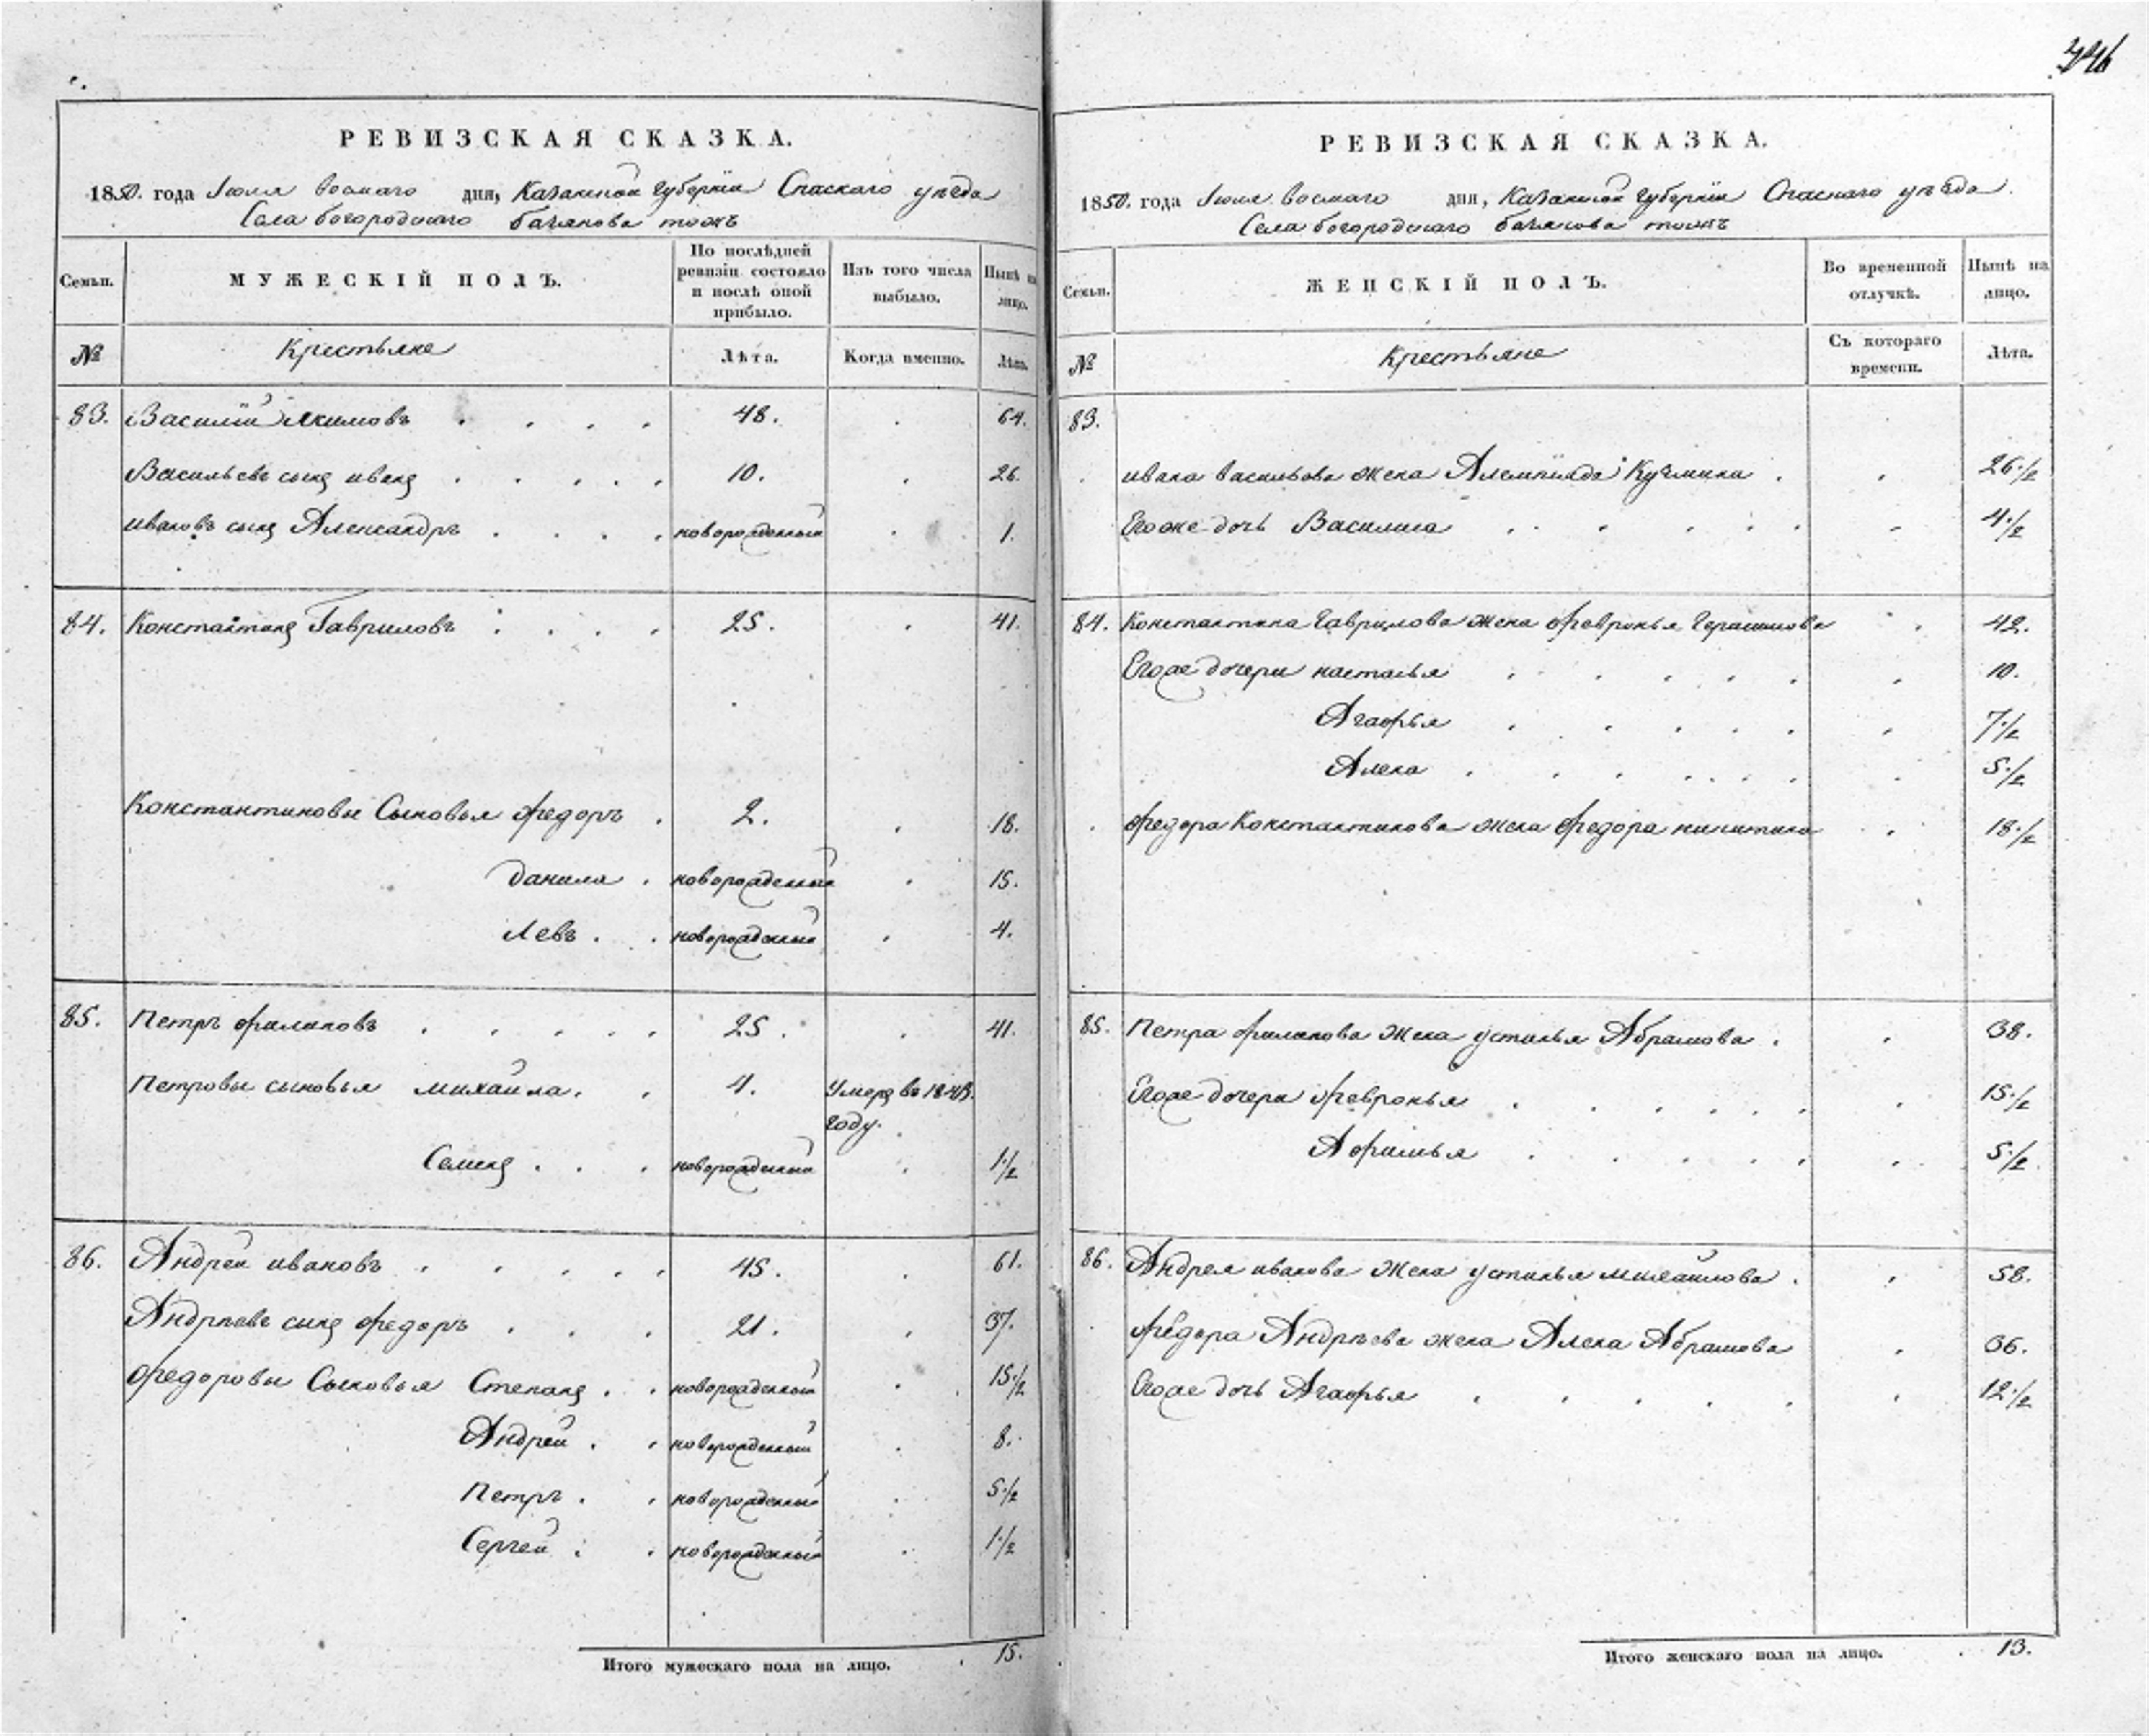 346
РЕВИЗСКАЯ СКАЗКА.
1850. года Іюля восмаго дня, Казанской губерніи Спаскаго уѣзда
Села богородскаго бачякова тожъ
Семьи. МУЖЕСКІЙ ПОЛЪ. По послѣдней ревизіи состояло и послѣ оной прибыло. Изъ того числа выбыло. Нынѣ на лицо.
№ Крестьяне Лѣта. Когда именно. Лѣта.
83. Василій Якимовъ 48. 64.
Васильевъ сынъ иванъ 10. 26.
ивановъ сынъ Александръ новорожденный 1.
84. Константинъ Гавриловъ 25. 41.
Константиновы Сыновья Федоръ 2. 18.
данила новорожденный 15.
Левъ новорожденный 4.
85. Петръ филиповъ 25. 41.
Петровы сыновья михайла. 4. Умеръ въ 1843.
году.
Семенъ новорожденный 1/2
86. Андрей ивановъ 45. 61.
Андреевъ сынъ федоръ 21. 37.
федоровы Сыновья Степанъ новорожденный 15 1/2
Андрей новорожденный 8.
Петръ новорожденный 5 1/2
Сергей новорожденный 1 1/2
Итого мужескаго пола на лицо. 15.
РЕВИЗСКАЯ СКАЗКА.
1850. года Іюля восмаго дня, Казанской губерніи Спаскаго уѣзда.
Села богородскаго бачякова тожъ
Семьи. ЖЕНСКІЙ ПОЛЪ. Во временной отлучкѣ. Нынѣ на лицо.
№ Крестьяне Съ котораго времени. Лѣта.
83.
ивана васильева жена Алемпіяда Кузмина 26 1/2
Егоже дочь Василиса 4 1/2
84. Константина гаврилова жена февронья герасимова 42.
Егоже дочери настасья 10.
Агафья 7 1/2
Алена 5 1/2
федора Константинова жена федора никитина 18 1/2
85. Петра филипова жена устинья Абрамова 38.
Егоже дочери февронья 15 1/2
Афимья 5 1/2
86. Андрея иванова жена устинья михайлова 58.
федора Андреева жена Алена Абрамова 36.
Егоже дочь Агафья 12 1/2
Итого женскаго пола на лицо. 13.